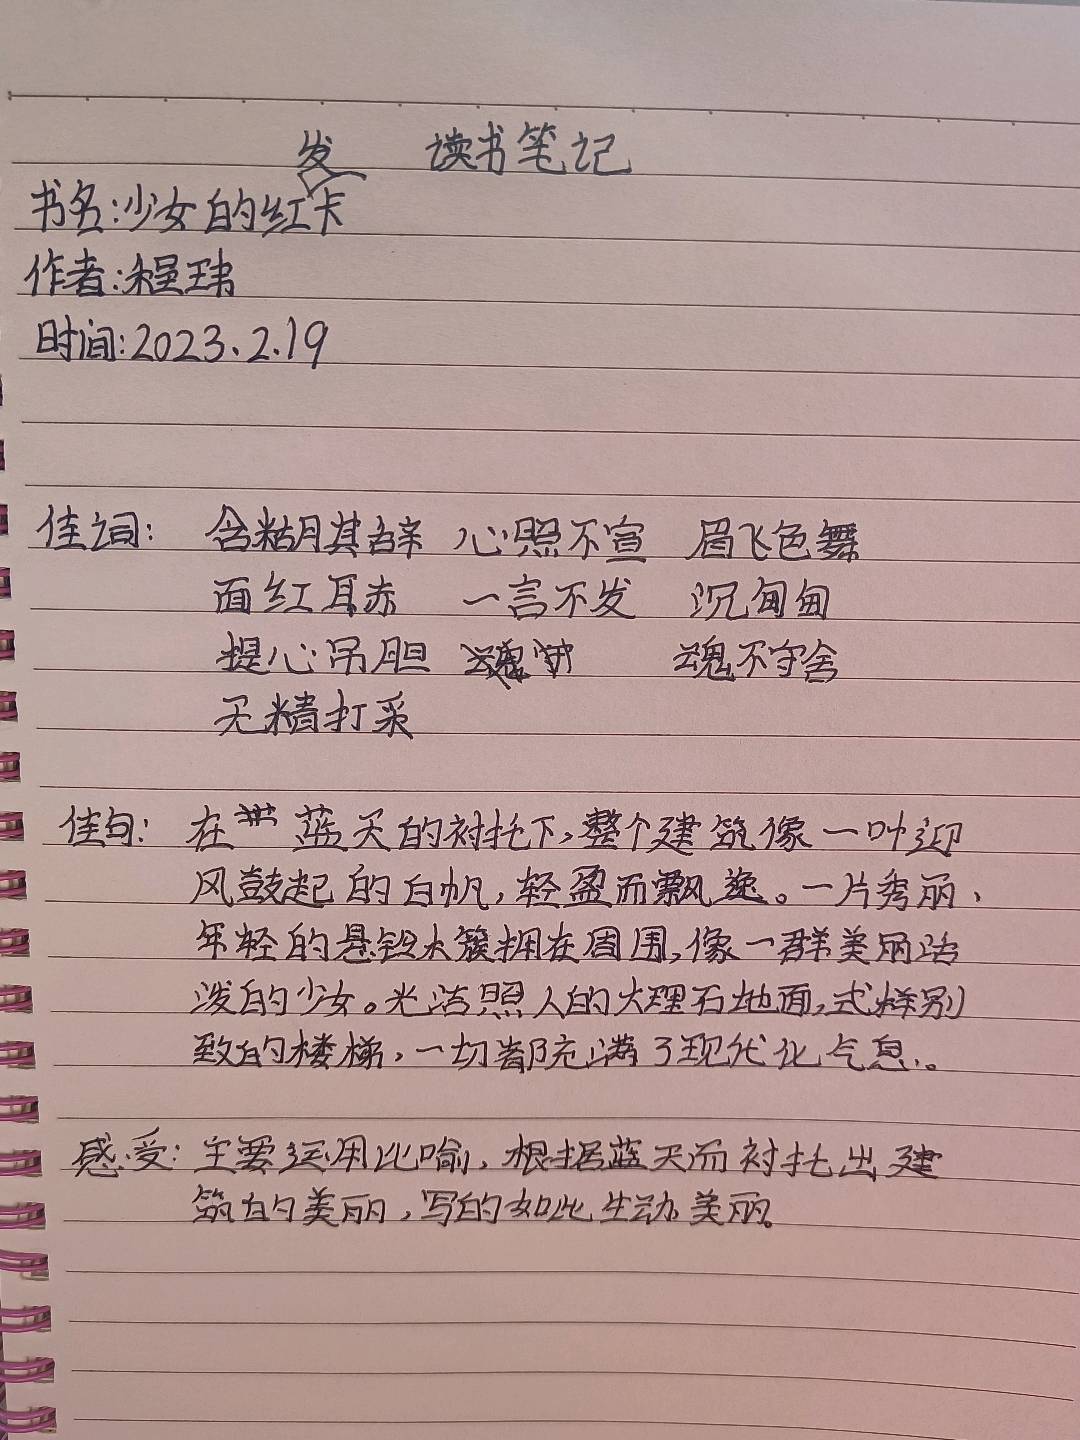 读书笔记
书名:少女的红发卡
作者:程玮
时间:2023.2.19
佳词: 含糊其辞 心照不宣 眉飞色舞
面红耳赤 一言不发 沉甸甸
提心吊胆 魂不守舍
无精打采
佳句: 在蓝天的衬托下,整个建筑像一叶迎
风鼓起的白帆,轻盈而飘逸。一片秀丽、
年轻的悬铃木簇拥在周围,像一群美丽活
泼的少女。光洁照人的大理石地面,式样别
致的楼梯,一切都充满了现代化气息。
感受: 主要运用比喻,根据蓝天而衬托出建
筑的美丽,写的如此生动美丽。